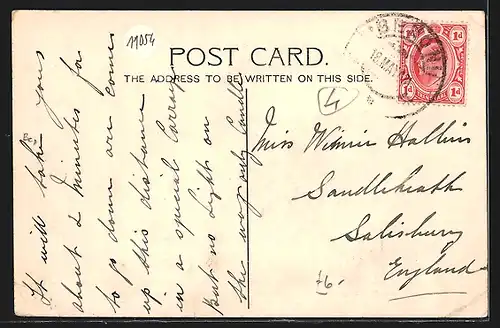 11054
POST CARD.
THE ADDRESS TO BE WRITTEN ON THIS SIDE.
4
1d 1d
1d 1d
It will take you
about 2 Minutes for
to go down or comes
up this distance
in a special Carraig
But no Lights on
the way only Candle
Miss Winnie Hollins
Sandleheath
Salisbury
England